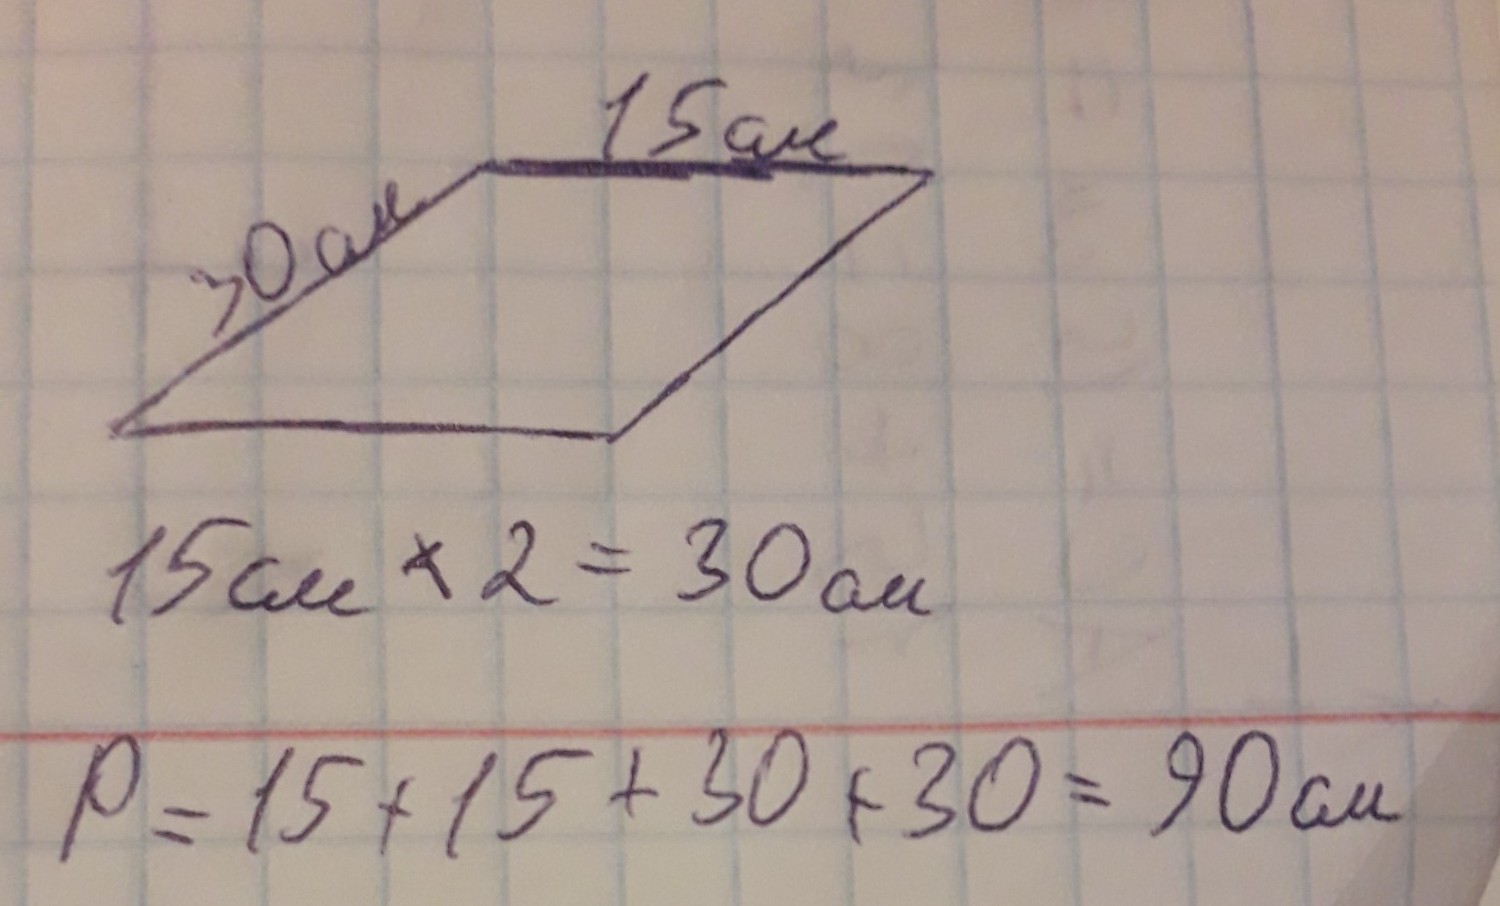 15 см
30 см
15 см × 2 = 30 см
P = 15 + 15 + 30 + 30 = 90 см